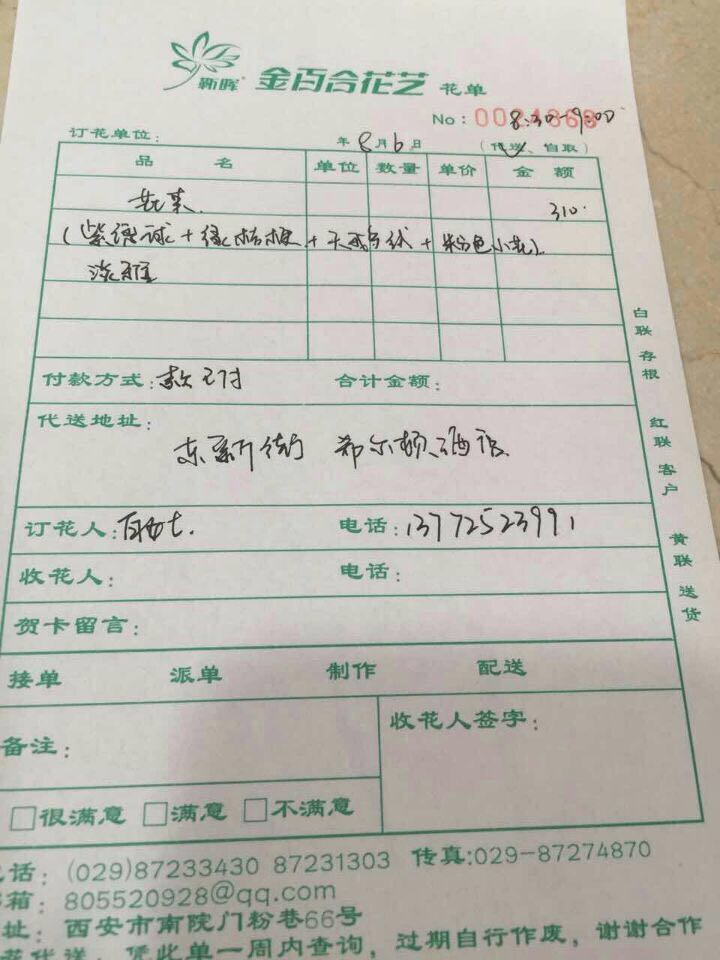 新晖 金百合花艺 花单
No: 0021868 8:30-9:00
订花单位: 年8月6日 (代送、自取)
品 名 单位 数量 单价 金 额
花束 310.
(紫绣球+绿桔梗+天 + 粉色小花)
淡雅
付款方式:款已付 合计金额:
代送地址:
东新街 希尔顿酒店
订花人: 女士. 电话:13772523991
收花人: 电话:
贺卡留言:
接单 派单 制作 配送
备注: 收花人签字:
□很满意 □满意 □不满意
电话: (029)87233430 87231303 传真:029-87274870
邮箱: 805520928@qq.com
地址: 西安市南院门粉巷66号
花代送, 凭此单一周内查询, 过期自行作废, 谢谢合作
白联 存根 红联 客户 黄联 送货